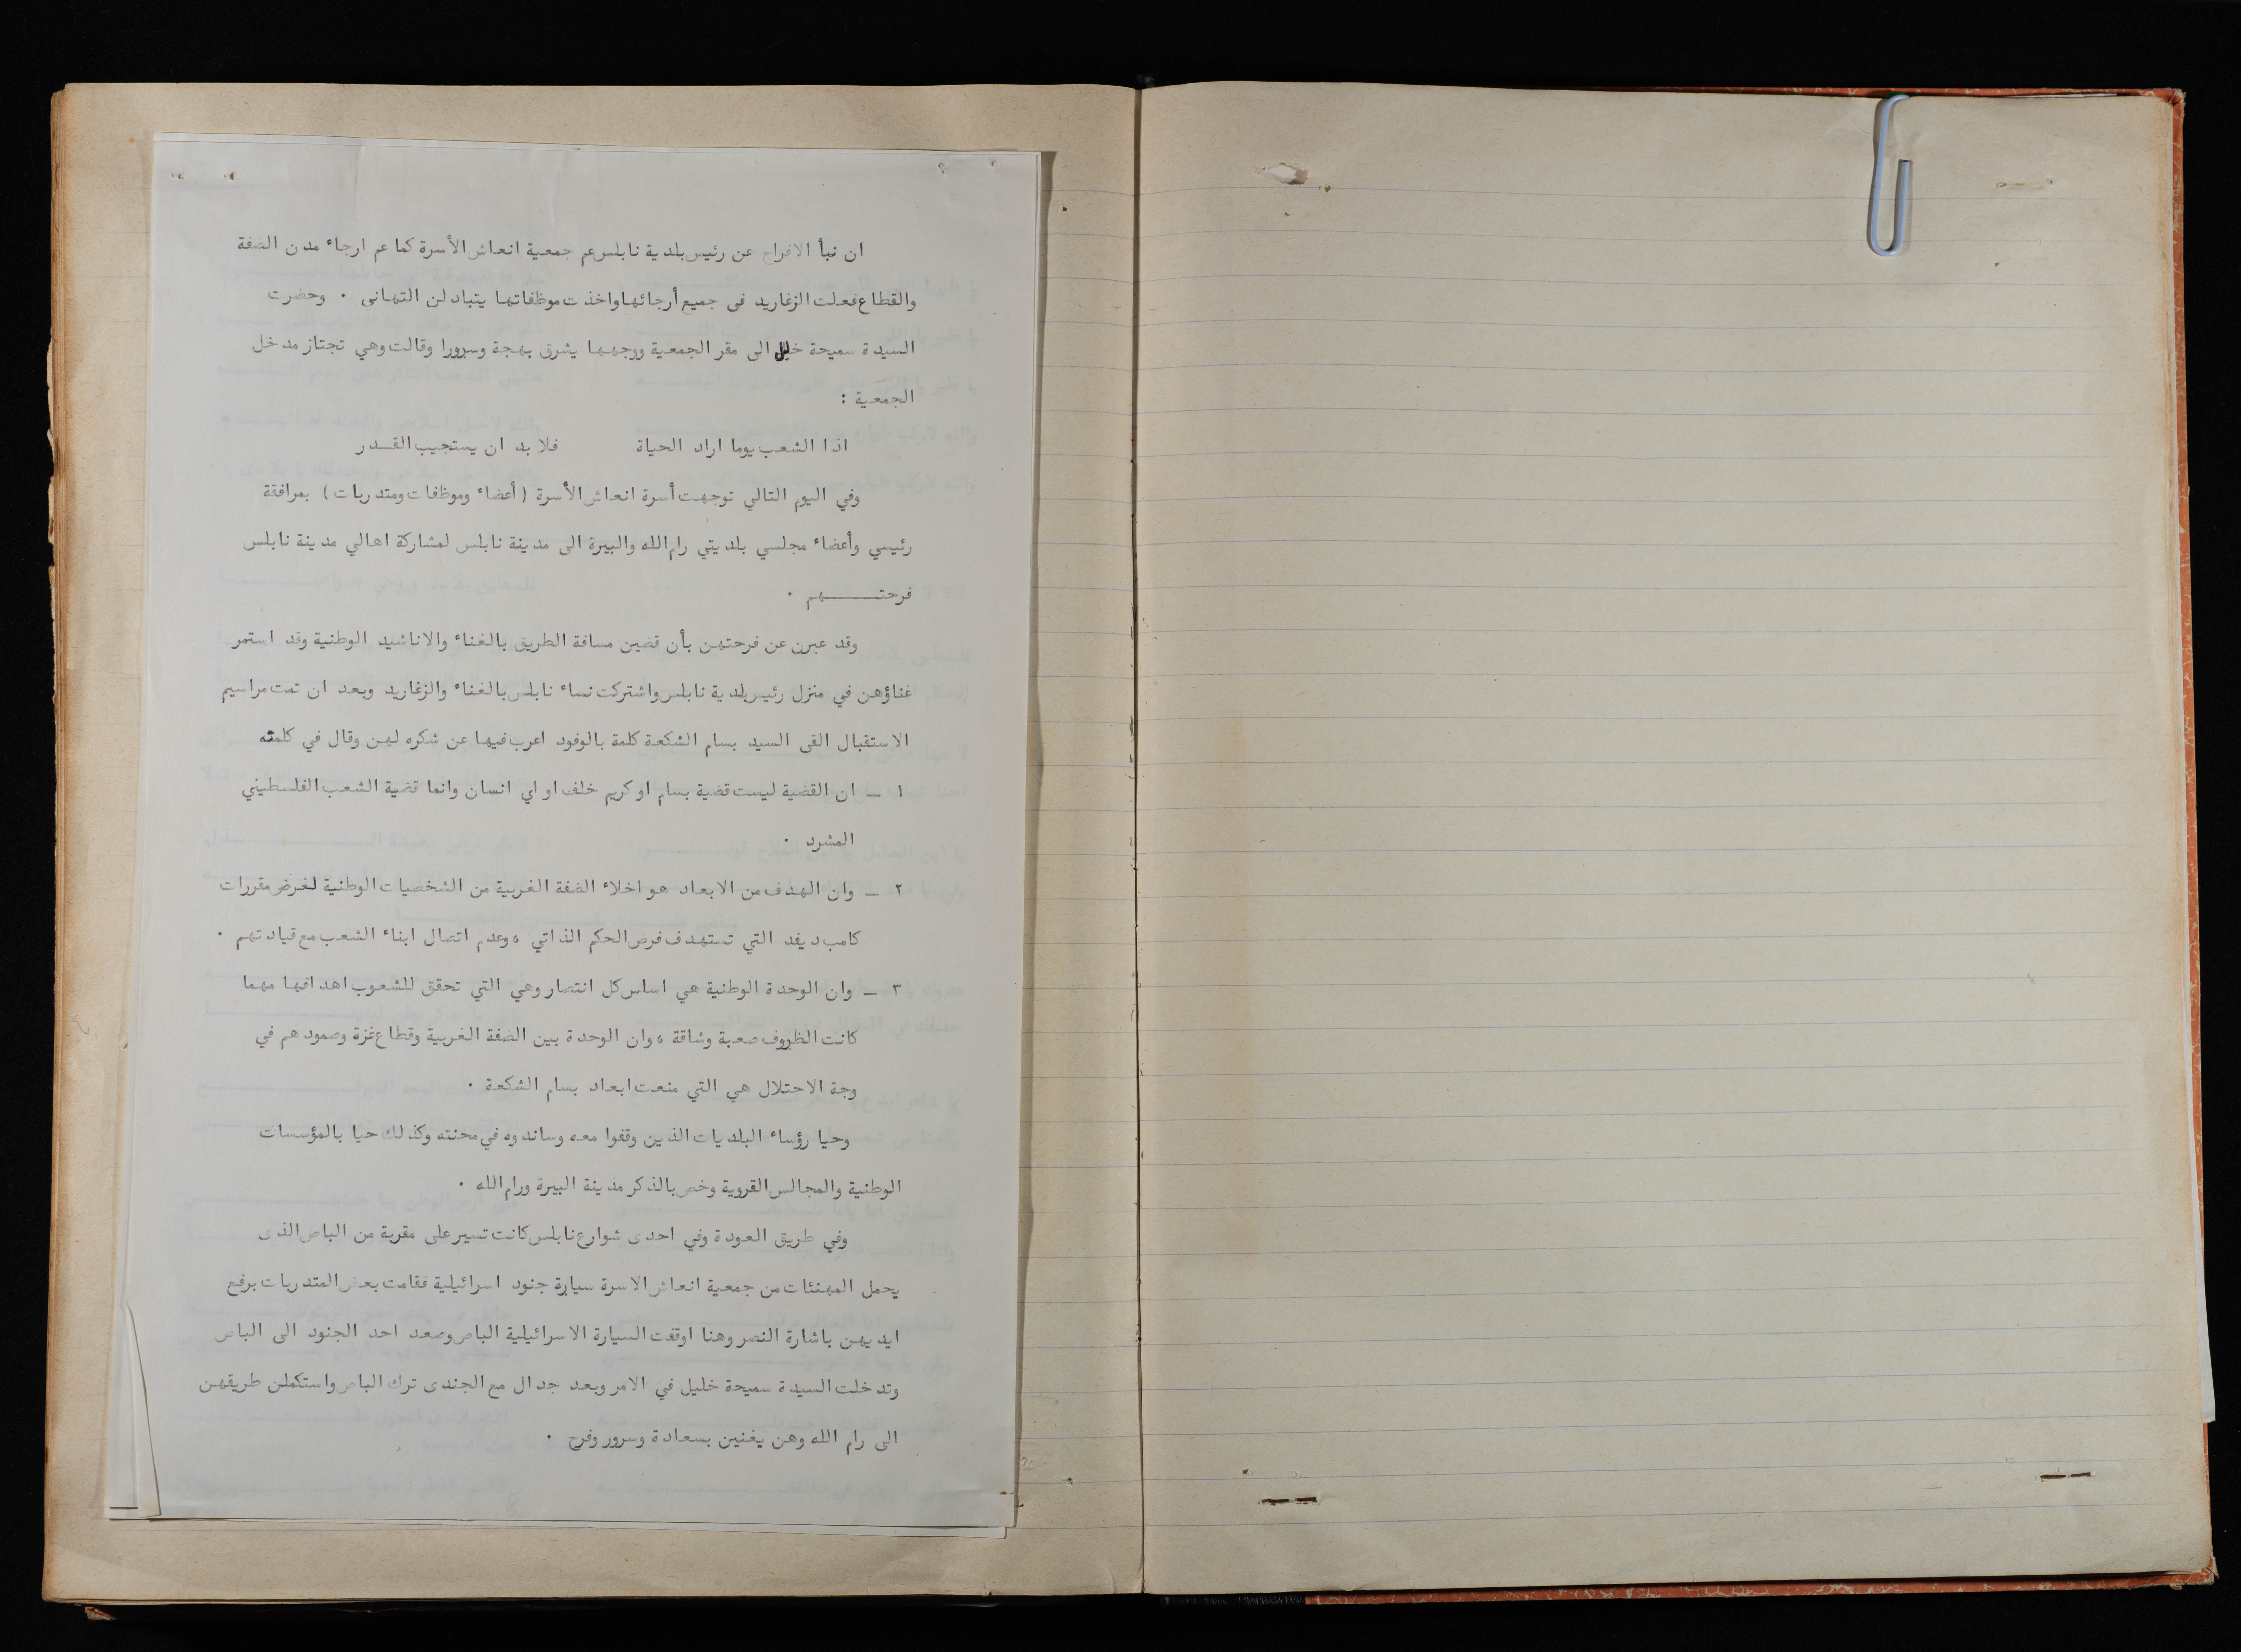 ان نبأ الافراح عن رئيس بلدية نابلس عم جمعية انعاش الأسرة كما عم ارجاء مدن الضفة
والقطاع فعلت الزغاريد فى جميع أرجائها واخذت موظفاتها يتبادلن التهانى .  وحضرت
السيدة سميحة خليل الى مقر الجمعية ووجهها يشرق بهجة وسرورا وقالت وهي تجتاز مدخل
الجمعية :
اذا الشعب يوما اراد الحياة    فلا بد ان يستجيب القـــدر
وفي اليوم التالي توجهت أسرة انعاش الأسرة ( أعضاء وموظفات ومتدربات ) بمرافقة
رئيسي وأعضاء مجلسي بلديتي رام الله والبيرة الى مدينة نابلس لمشاركة اهالي مدينة نابلس
فرحتــــــهم .
وقد عبرن عن فرحتهن بأن قضين مسافة الطريق بالغناء والاناشيد الوطنية وقد استمر
غناؤهن في منزل رئيس بلدية نابلس واشتركت نساء نابلس بالغناء والزغاريد وبعد ان تمت مراسيم
الاستقبال القى السيد بسام الشكعة كلمة بالوفود اعرب فيها عن شكره لهن وقال في كلمته
١ ــ ان القضية ليست قضية بسام او كريم خلف او اي انسان وانما قضية الشعب الفلسطيني
المشرد .
٢ ــ وان الهدف من الابعاد هو اخلاء الضفة الغربية من الشخصيات الوطنية لغرض مقررات
كامب ديفد التي تستهدف فرض الحكم الذاتي ، وعدم اتصال ابناء الشعب مع قيادتهم .
٣ ــ وان الوحدة الوطنية هي اساس كل انتصار وهي التي تحقق للشعوب اهدافها مهما
كانت الظروف صعبة وشاقة ، وان الوحدة بين الضفة الغربية وقطاع غزة وصمودهم في
وجة الاحتلال هي التي منعت ابعاد بسام الشكعة .
وحيا رؤساء البلديات الذين وقفوا معه وساندوه في محنته وكذلك حيا بالمؤسسات
الوطنية والمجالس القروية وخص بالذكر مدينة البيرة ورام الله .
وفي طريق العودة وفي احدى شوارع نابلس كانت تسير على مقربة من الباص الذى
يحمل المهنئات من جمعية انعاش الاسرة سيارة جنود اسرائيلية فقامت بعض المتدربات برفع
ايديهن باشارة النصر وهنا اوقفت السيارة الاسرائيلية الباص وصعد احد الجنود الى الباص
وتدخلت السيدة سميحة خليل في الامر وبعد جدال مع الجندى ترك الباص واستكملن طريقهن
الى رام الله وهن يغنين بسعادة وسرور وفرح .